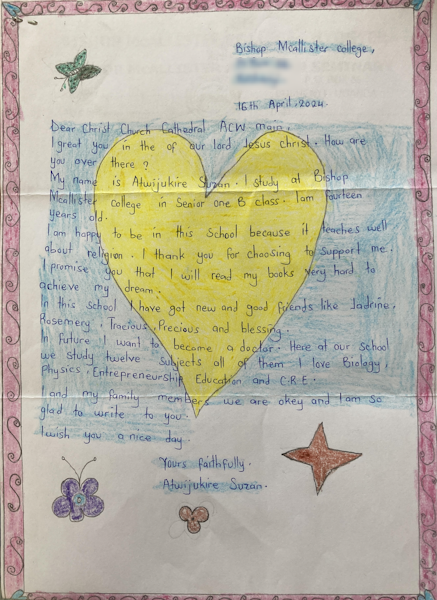 Bishop Mcallister college,
16th April, 2024.
Dear Christ Church Cathedral ACW main,
I great you in the of our lord Jesus Christ. How are
you over there?
My name is Atwijukire Suzan. I study at Bishop
Mcallister college in Senior one B class. I am fourteen
years old.
I am happy to be in this School because it teaches well
about religion. I thank you for choosing to support me.
I promise you that I will read my books very hard to
achieve my dream.
In this school I have got new and good friends like Jadrine,
Rosemery, Tracious, Precious and blessing.
In future I want to become a doctor. Here at our school
we study twelve Subjects all of them I love Biology,
Physics, Entrepreneurship Education and C.R.E.
I and my family members we are okey and I am so
glad to write to you.
I wish you a nice day.
Yours faithfully.
Atwijukire Suzan.